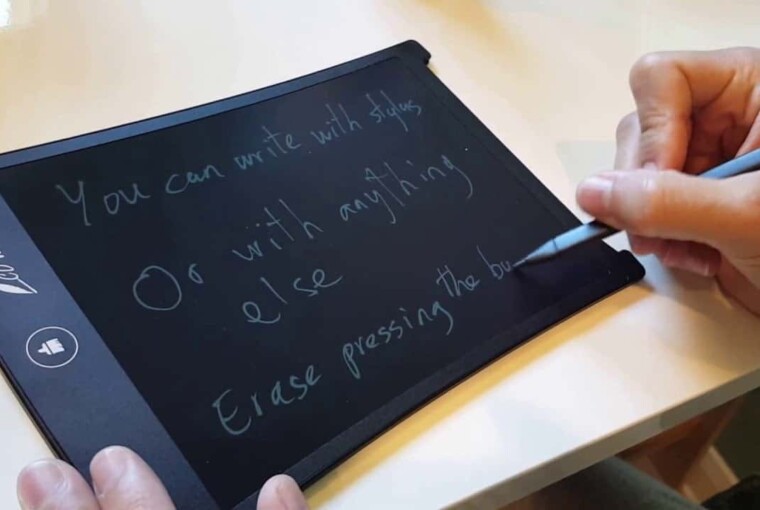 You can write with stylus
Or with anything
else
Erase pressing the bu